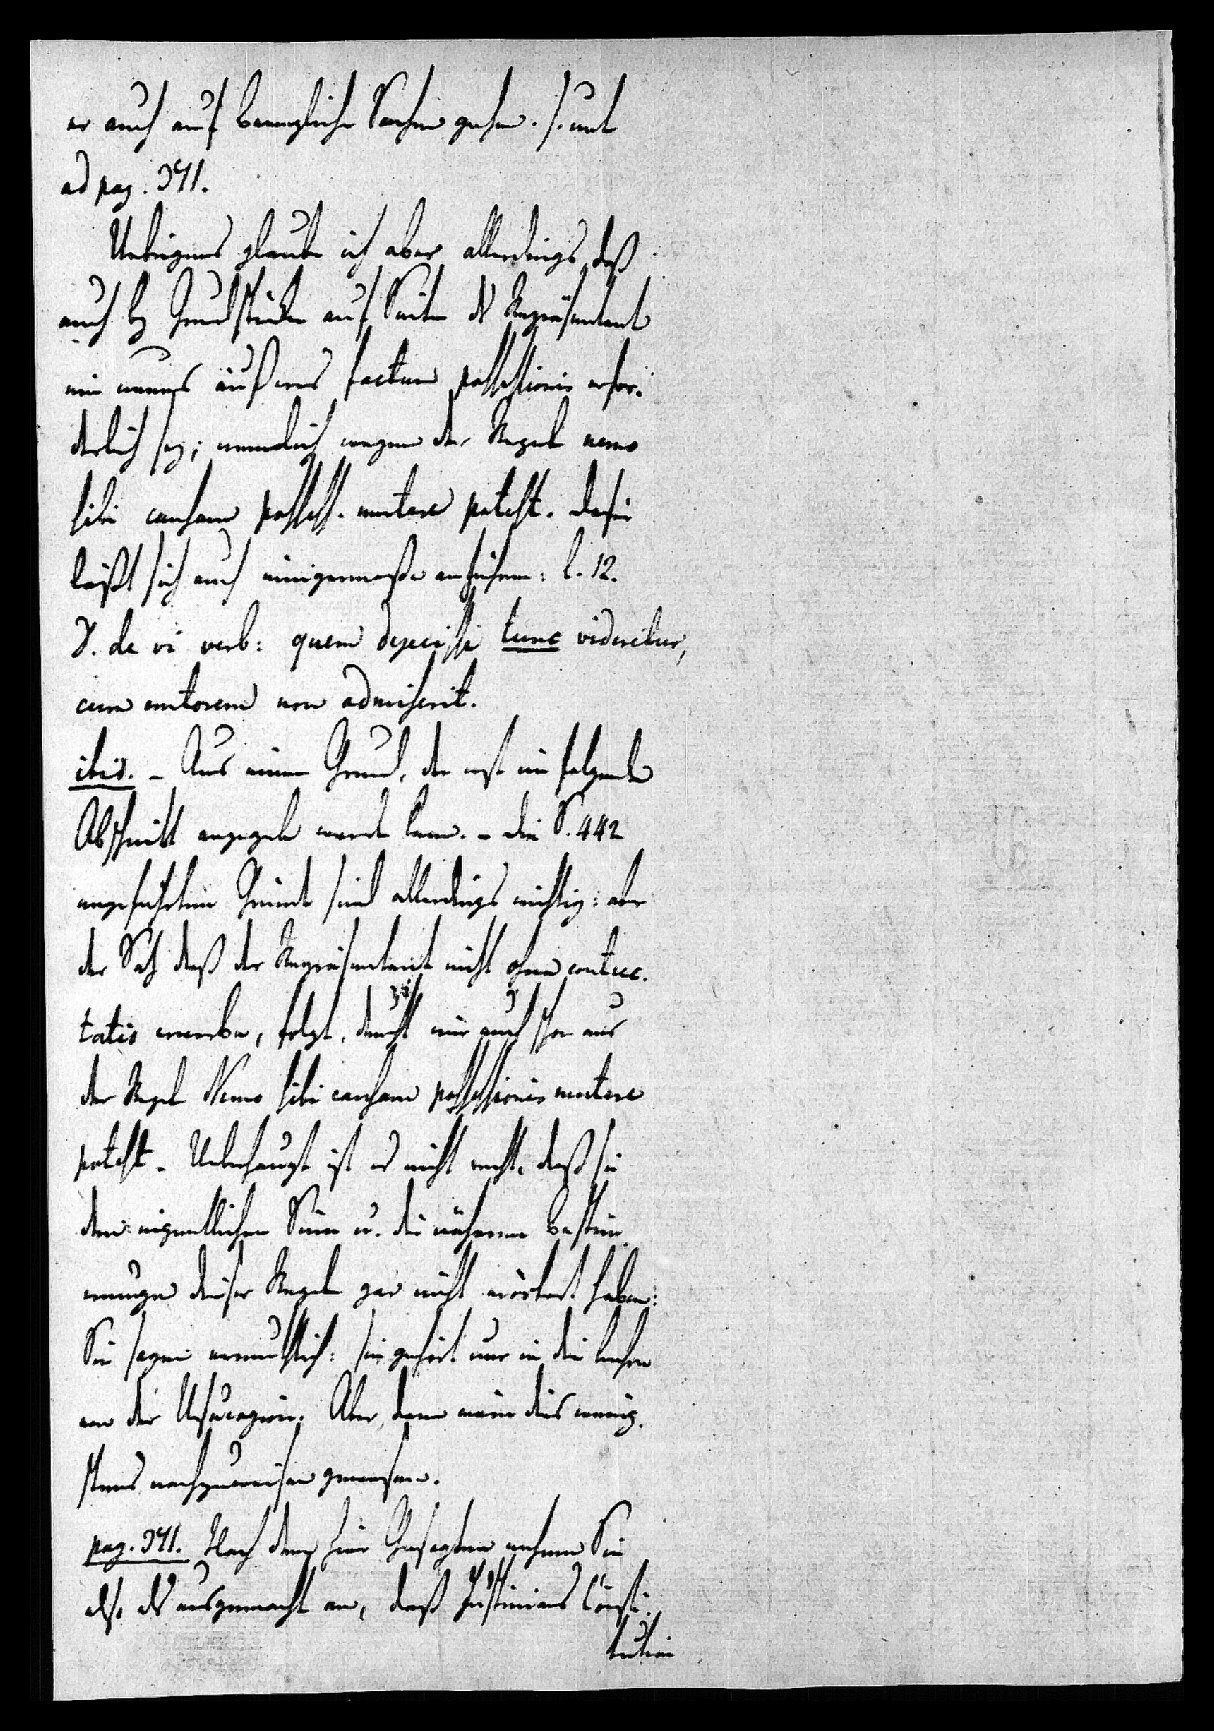 er auch auf bewegliche Sachen gehen. s. unt
ad pag. 391.
Uebrigens glaube ich aber allerdings, daß
auch bey Grundstücken auf Seiten des Repräsentant
ein neues äußeres factum possessionis erfor-
derlich sey; nemlich wegen der Regel nemo
sibi causam possess. mutare potest. Dafür
läßt sich auch einigermaße anführen: l. 12.
D. de vi verb: quem dejecisse <u>tunc</u> videretur,
cum emtorem non admiserit.
ibid. – Aus einem Grund, der erst im folgende
Abschnitt angegeb. werde kann. – die S. 442
angeführten Gründe sind allerdings wichtig: aber
der Satz daß der Repräsentant nicht ohne contrec-
tatio erwerbe, folgt, deucht mir auch schon aus
der Regel Nemo sibi causam possessionis mutare
potest. Ueberhaupt ist es nicht recht, daß sie
den eigentlichen Sinn u. die näheren Bestim-
mungen dieser Regel gar nicht erörtert haben:
Sie sagen vermuthlich: sie gehört nur in die Lehre
von der Usucapion. Aber, dann wäre dies wenig-
stens nachzuweisen gewesen.
pag. 391. Nach dem hier Gesagten nehmen Sie
als ausgemacht an, daß Justinians Consti-
tution